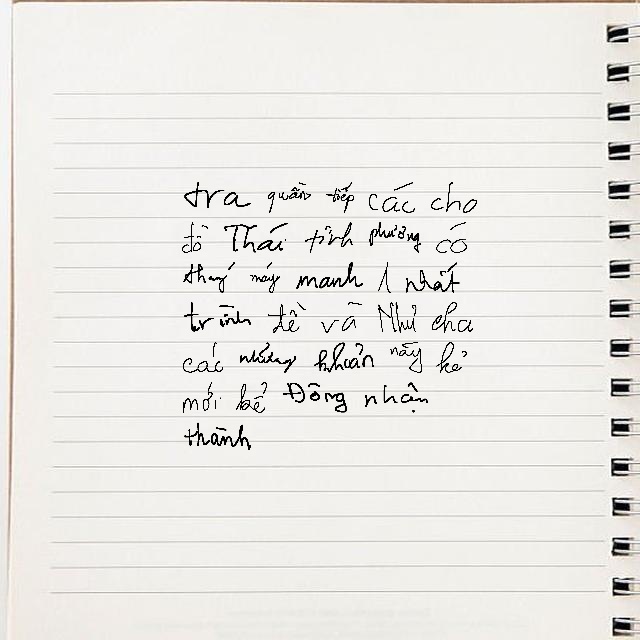 tra quần tiếp các cho
đồ Thái tỉnh phương có
thay máy manh 1 nhất
trình tề và Như cha
các những khoản này kẻ
mới bể Đông nhận
thành